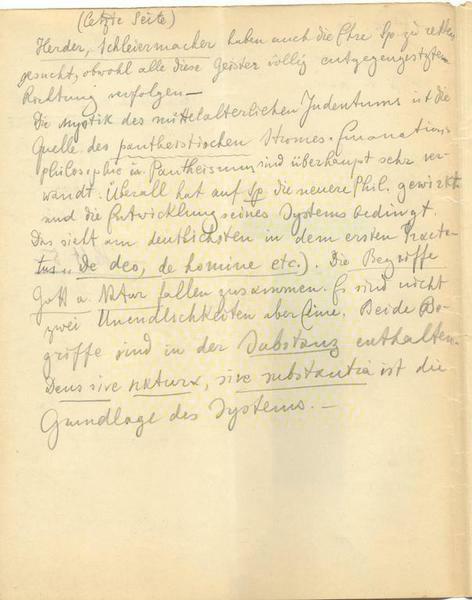 (letzte Seite)
Herder, Schleiermacher haben auch die Ehre Sp. zu retten
gesucht, obwohl alle diese Geister völlig entgegengesetzte
Richtung verfolgen –
Die Mystik des mittelalterlichen Judentums ist die
Quelle des pantheistischen Stromes. Emanations-
philosophie u. Pantheismus sind überhaupt sehr ver-
wandt. Überall hat auf Sp. die neuere Phil. gewirkt
und die Entwicklung seines Systems bedingt.
Das sieht am deutlichsten in dem ersten Tracta-
tus De deo, de homine etc.). Die Begriffe
Gott u. Natur fallen zusammen. Es sind nicht
zwei Unendlichkeiten aber eine. Beide Be-
griffe sind in der Substanz enthalten.
Deus sive natura, sive substantia ist die
Grundlage des Systems. –